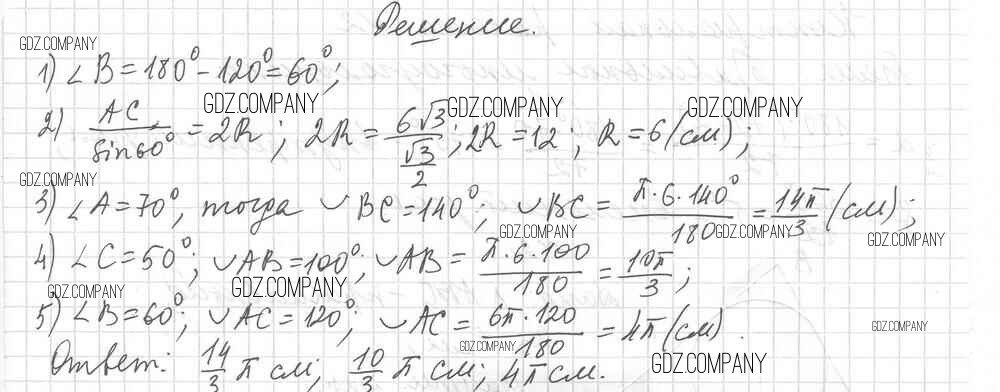 Решение.
GDZ.COMPANY
1) ∠B = 180° - 120° = 60°;
GDZ.COMPANY GDZ.COMPANY GDZ.COMPANY
2) AC / sin60° = 2R; 2R = 6√3 / (√3/2); 2R = 12; R = 6 (см);
GDZ.COMPANY
3) ∠A = 70°, тогда ◡BC = 140°; ◡BC = π·6·140° / 180 = 14π/3 (см);
GDZ.COMPANY GDZ.COMPANY GDZ.COMPANY
4) ∠C = 50°; ◡AB = 100°; ◡AB = π·6·100 / 180 = 10π/3;
GDZ.COMPANY GDZ.COMPANY
5) ∠B = 60°; ◡AC = 120°; ◡AC = 6π·120 / 180 = 4π (см).
GDZ.COMPANY GDZ.COMPANY GDZ.COMPANY
Ответ: 14/3 π см; 10/3 π см; 4π см.